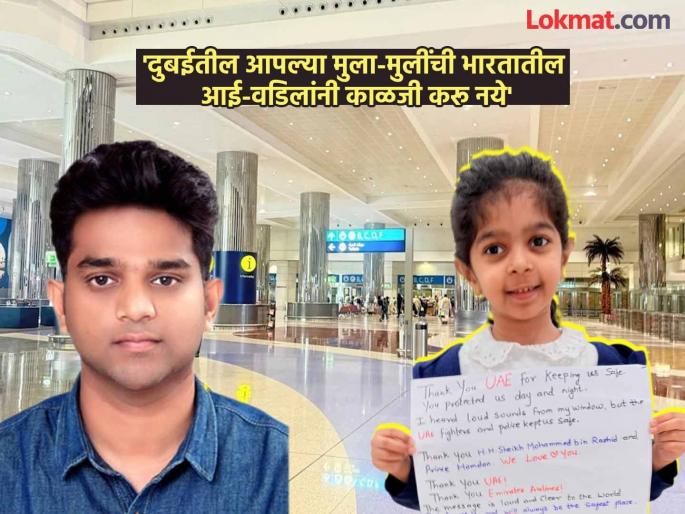 Lokmat.com
'दुबईतील आपल्या मुला-मुलींची भारतातील
आई-वडिलांनी काळजी करू नये'
B, C, D, F
Thank You UAE for keeping us safe.
You protected us day and night.
I heard loud sounds from my window, but the
UAE fighters and police kept us safe.
Thank You H.H. Sheikh Mohammed bin Rashid and
Prince Hamdan. We Love You.
Thank You UAE!
Thank You Emirates Airlines!
The message is loud and clear to the World
will always be the safest place.